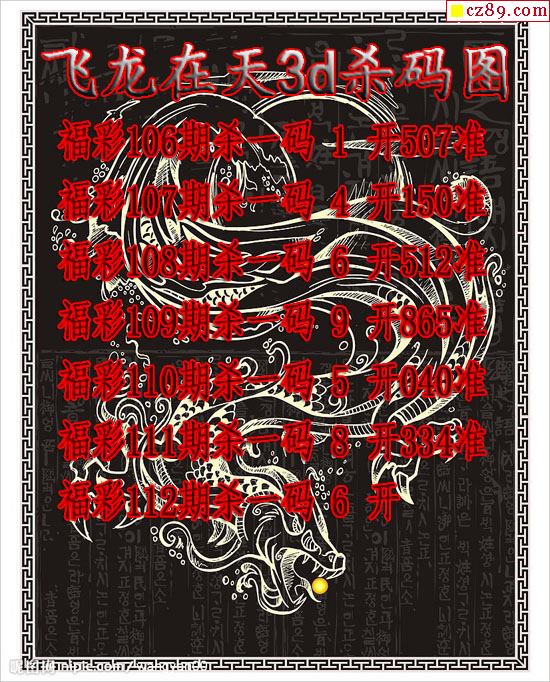 cz89.com
飞龙在天3d杀码图
福彩106期杀一码 1 开507准
福彩107期杀一码 4 开150准
福彩108期杀一码 6 开512准
福彩109期杀一码 9 开865准
福彩110期杀一码 5 开040准
福彩111期杀一码 8 开334准
福彩112期杀一码 6 开